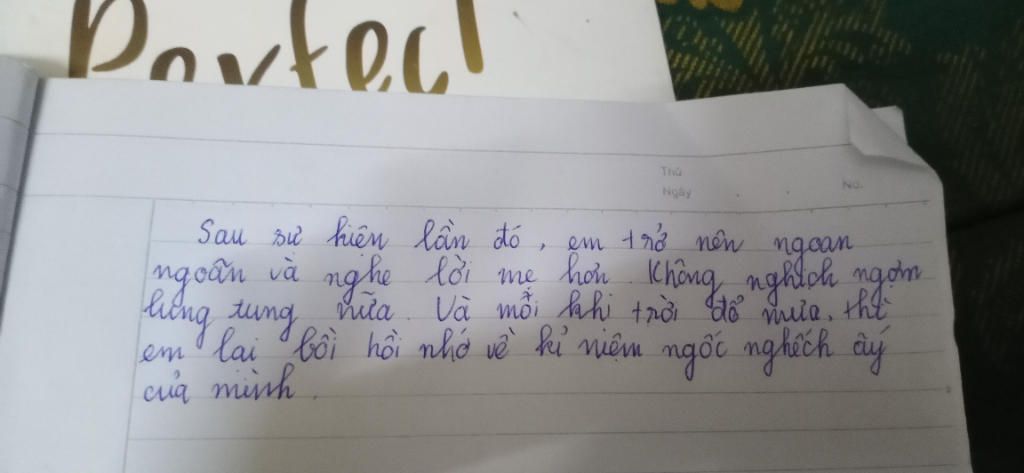 Perfect
Thứ
Ngày
No.
Sau sự hiện lần đó, em trở nên ngoan
ngoãn và nghe lời mẹ hơn. Không nghịch ngợm
lung tung nữa. Và mỗi khi trời đổ mưa, thì
em lại bồi hồi nhớ về kỉ niệm ngốc nghếch ấy
của mình.